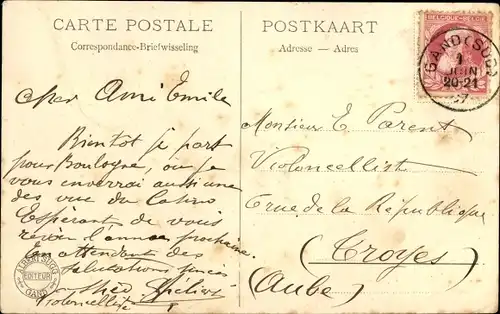 CARTE POSTALE
Correspondance-Briefwisseling
POSTKAART
Adresse — Adres
BELGIQUE·BELGIE
GAND (SUD)
1
JUIN
20-21
07
Cher Ami Emile
Bientot je part
pour Boulogne, ou je
vous enverrai aussi une
des vue du Casino
Espérant de vous
revoir l'année prochaine.
En attendant des
Salutations
Théo
Violoncelliste
Monsieur E. Parent
Violoncelliste
rue de la République
(Troyes)
(Aube)
ALBERT SUGG
EDITEUR
GAND